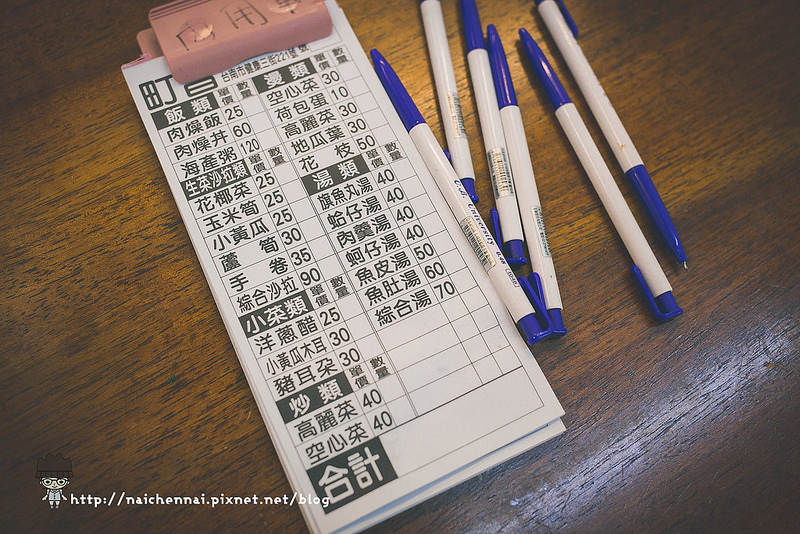 內用單
町三 台南市健康三街221號
飯類 單價 數量
肉燥飯 25
肉燥丼 60
海產粥 120
生菜沙拉類 單價 數量
花椰菜 25
玉米筍 25
小黃瓜 25
蘆筍 30
手卷 35
綜合沙拉 90
小菜類 單價 數量
洋蔥醋 25
小黃瓜木耳 30
豬耳朵 30
炒類 單價 數量
高麗菜 40
空心菜 40
合計
燙類 單價 數量
空心菜 30
荷包蛋 10
高麗菜 30
地瓜葉 30
花枝 50
湯類 單價 數量
旗魚丸湯 40
蛤仔湯 40
肉羹湯 40
蚵仔湯 40
魚皮湯 50
魚肚湯 60
綜合湯 70
University
http://naichennai.pixnet.net/blog